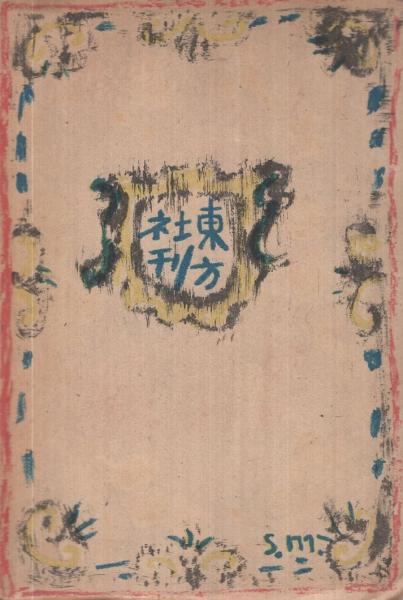 東方
社刊
S.M.